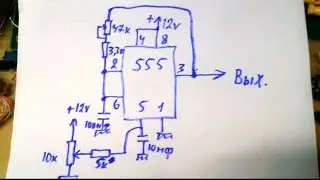 47к
+12v
4
8
3,3к
2
555
3
Вых.
6
+12v
100нф
5
1
10к
5к
10нф